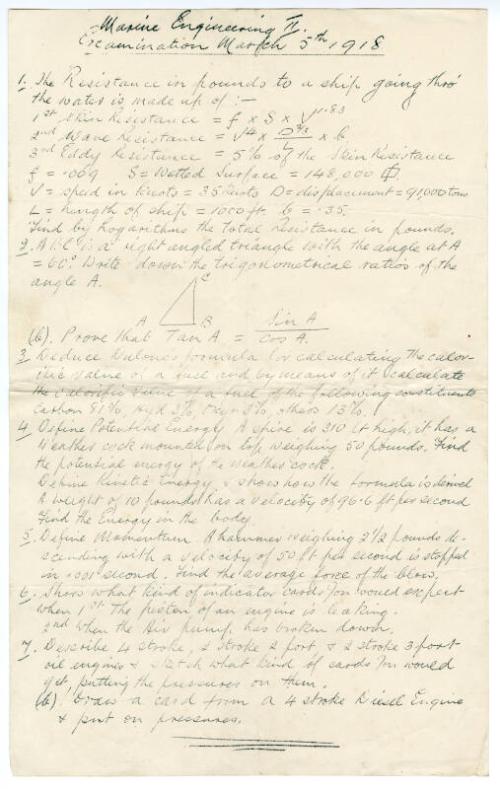 Marine Engineering II.
Examination March 5th 1918
1. The Resistance in pounds to a ship going thro'
the water is made up of :-
1st Skin Resistance = f x S x V^1.83
2nd Wave Resistance = V^4 x D^2/3 / L x b
3rd Eddy Resistance = 5% of the Skin Resistance
f = .009 S = Wetted Surface = 148,000
V = speed in knots = 35 knots D = displacement = 91,000 tons
L = length of ship = 1000 ft. b = .35.
Find by logarithms the total resistance in pounds.
2. ABC is a right angled triangle with the angle at A
= 60°. Write down the trigonometrical ratios of the
angle A.
C
A B
(b). Prove that Tan A = Sin A / cos A.
3. Deduce Dulong's formula for calculating the calor-
ific value of a fuel and by means of it calculate
the calorific value of a fuel of the following constituents
Carbon 81%, Hyd 3%, Oxy 3%, others 13%.
4. Define Potential Energy. A spire is 310 ft high, it has a
Weather cock mounted on top weighing 50 pounds. Find
the potential energy of the weather cock.
Define Kinetic Energy & show how the formula is derived
A weight of 10 pounds has a velocity of 96.6 ft per second
Find the Energy in the body.
5. Define Momentum. A hammer weighing 2 1/2 pounds de-
scending with a velocity of 50 ft per second is stopped
in second. Find the average force of the blow.
6. Show what kind of indicator cards you would expect
when 1st The piston of an engine is leaking.
2nd when the Air pump has broken down.
7. Describe 4 stroke, 2 stroke 2 port, & 2 stroke 3 port
oil engines & sketch what kind of cards you would
get, putting the pressures on them.
(b) Draw a card from a 4 stroke Diesel Engine
& put on pressures.